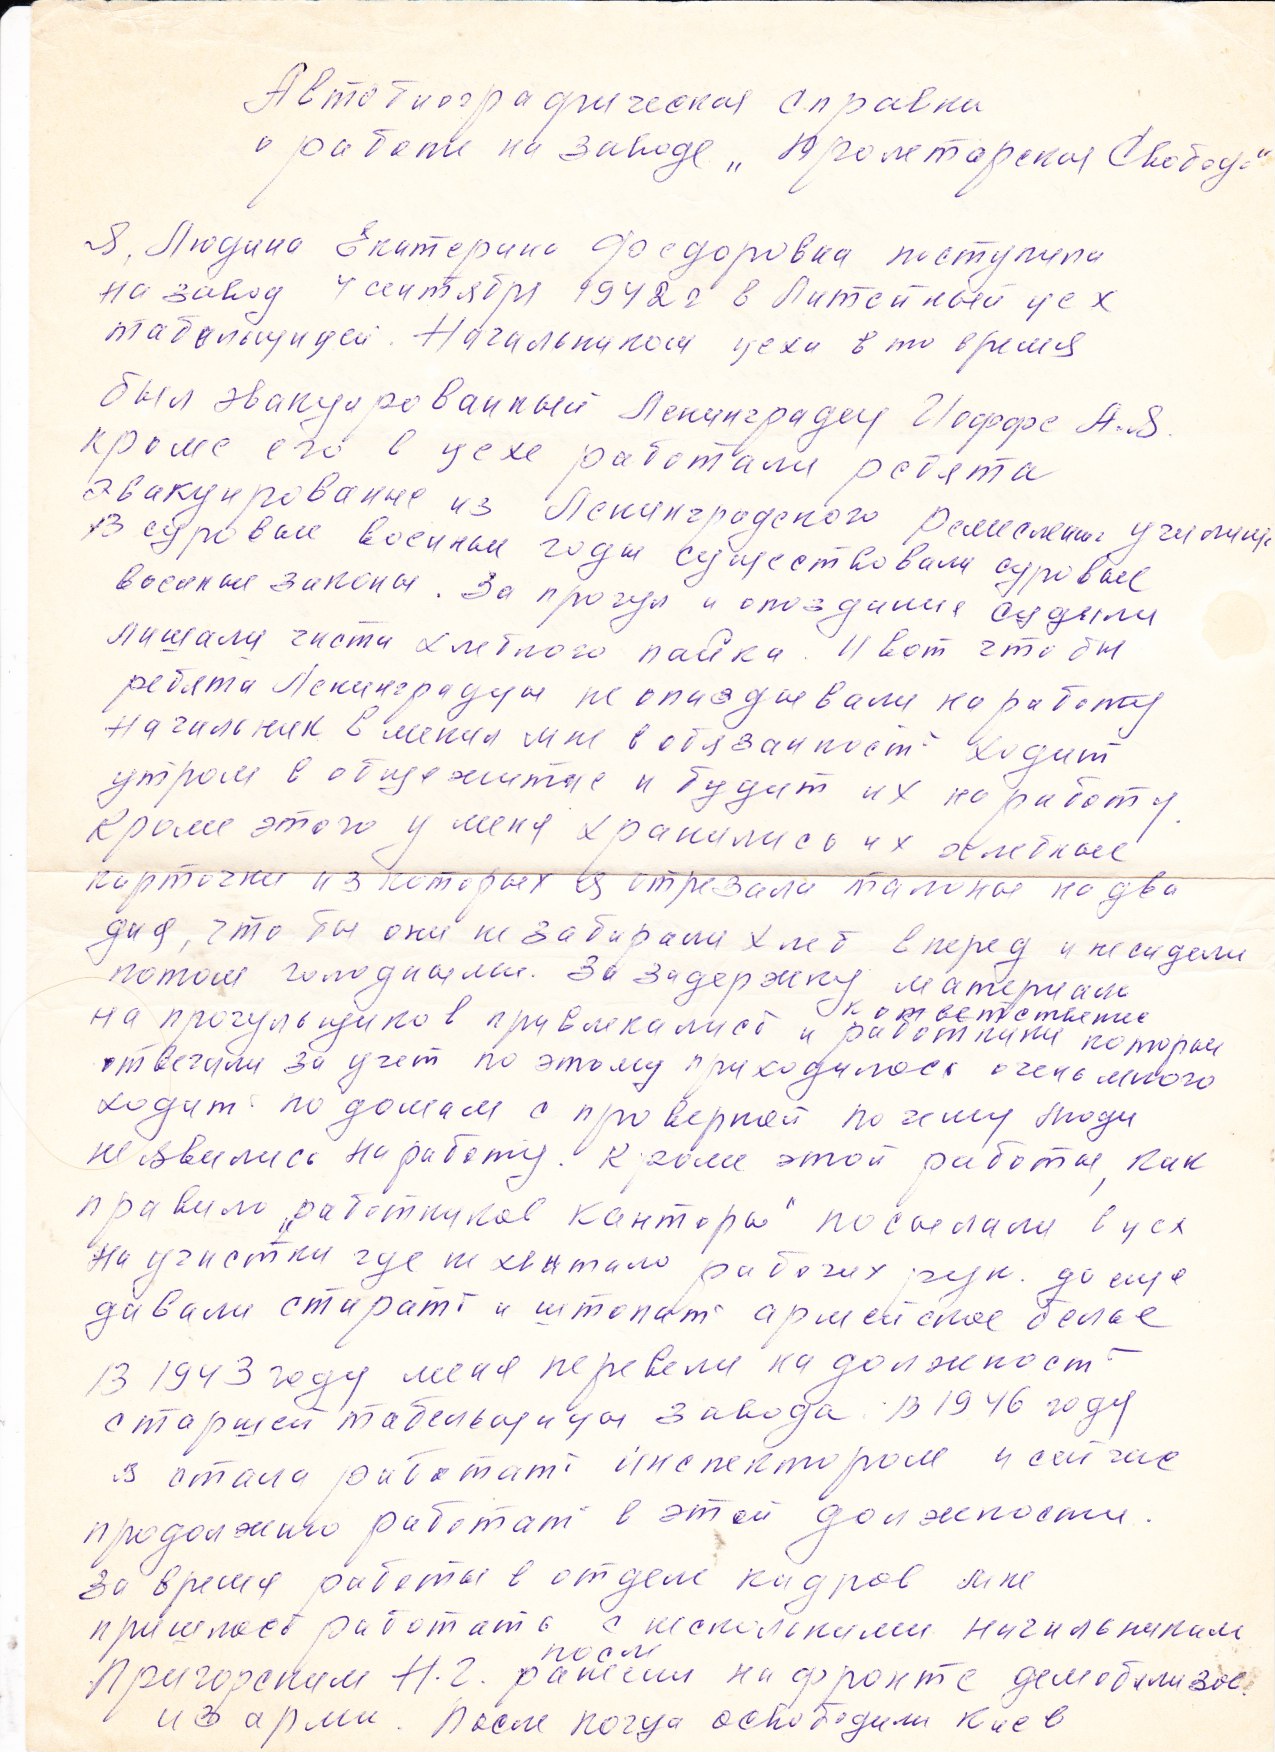 Автобиографическая справка
о работе на заводе „Пролетарская Свобода"
Я, Людина Екатерина Фоедоровна поступила
на завод 4 сентября 1942 г в Литейный цех
табельщицей. Начальником цеха в то время
был эвакуированный Ленинградец Иоффе А.Я.
кроме его в цехе работали ребята
эвакуированые из Ленинградского Ремесленног училища
В суровые военные годы существовали суровые
военные законы. За прогул и опоздание судили
лишали части хлебного пайка. И вот что бы
ребята Ленинградцы не опаздывали на работу
начальник вменил мне в обязанность ходит
утром в общежитие и будит их на работу.
Кроме этого у меня хранились их хлебные
карточки из которых я отрезала талоны на два
дня, что бы они не забирали хлеб вперед и не сидели
потом голодными. За задержку материала
на прогульщиков привлекались к ответственне и работники которые
отвечали за учет по этому приходилось очень много
ходить по домам с проверкой почему люди
не явились на работу. Кроме этой работы, как
правило „работников канторы" посылали в цех
на участки где не хватало рабочих рук. да еще
давали стирать и штопать армейское белье
В 1943 году меня перевели на должность
старшей табельщицы завода. В 1946 году
я стала работать инспектором и сейчас
продолжаю работать в этой должности.
За время работы в отделе кадров мне
пришлось работать с несколькими начальникам
Пригорским Н.Г. после ранения на фронте демобилизов.
из арми. После когда освободили Киев